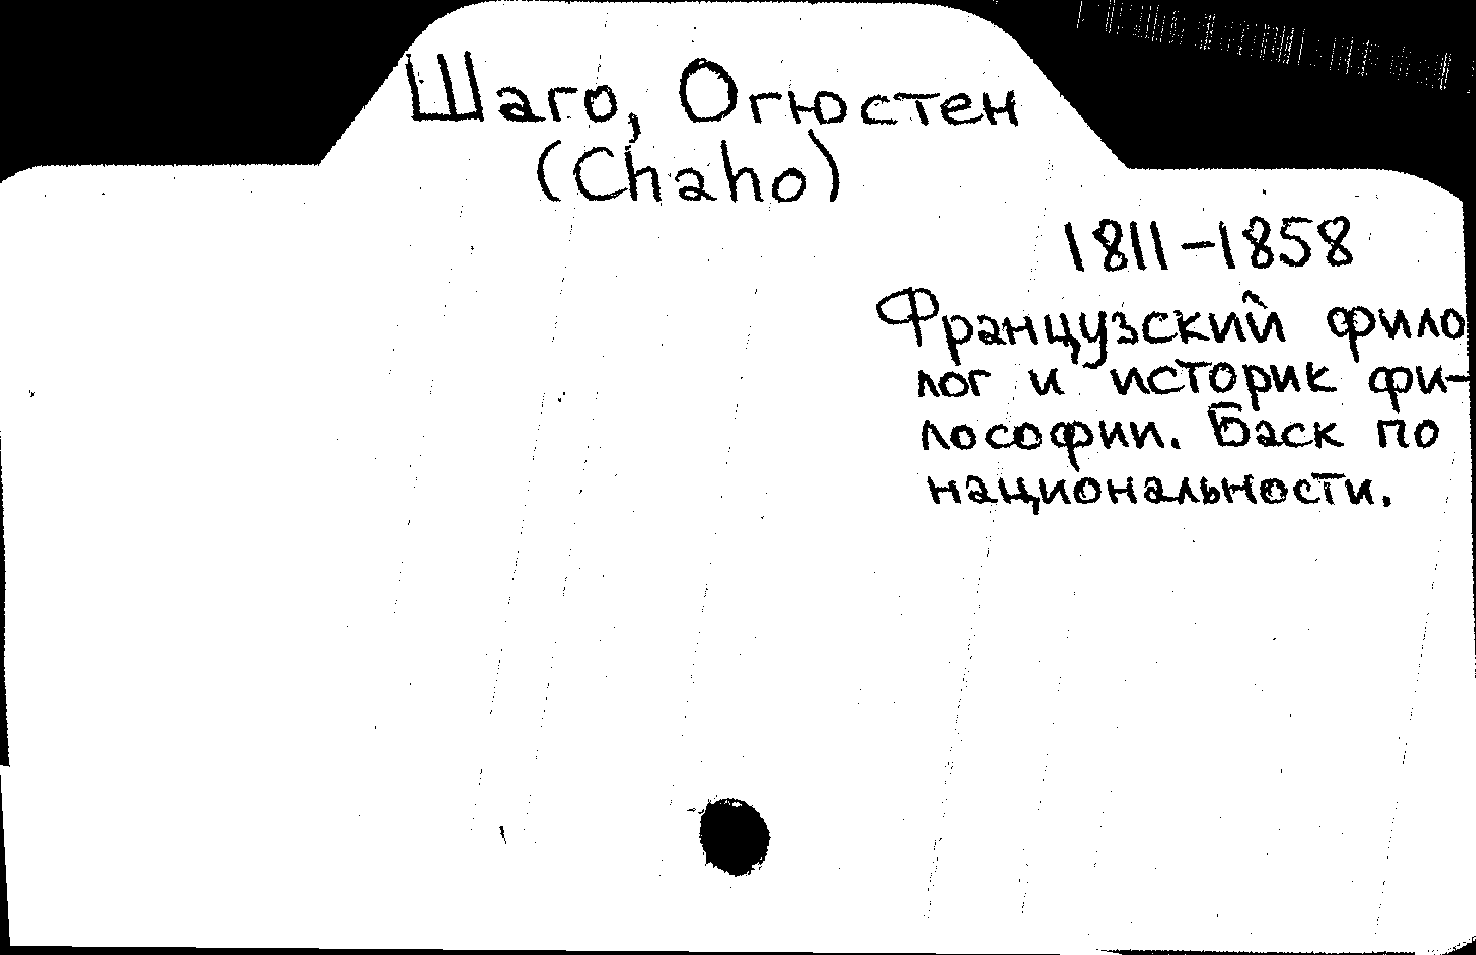 Шаго, Огюстен
(Chaho)
1811-1858
Французский фило
лог и историк фи-
лософии. Баск по
национальности.